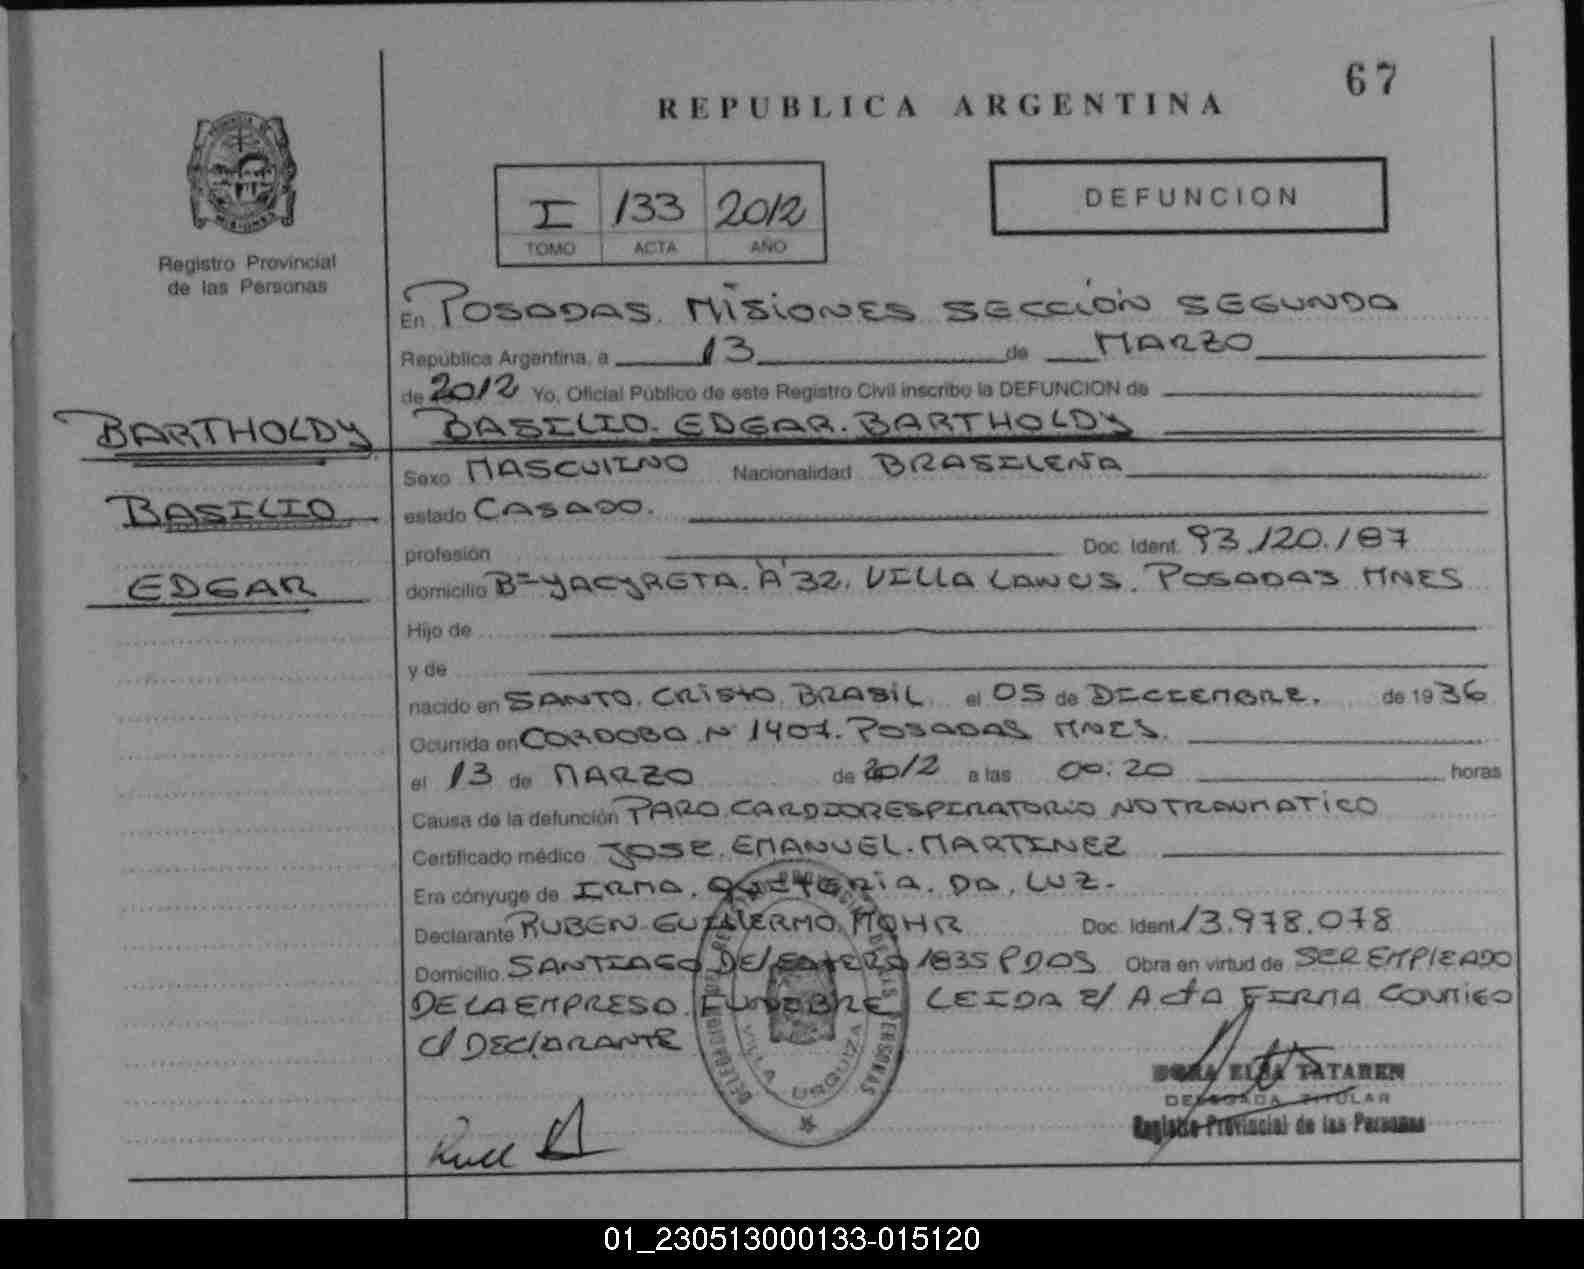 67
REPUBLICA ARGENTINA
I 133 2012
TOMO ACTA AÑO
DEFUNCION
Registro Provincial
de las Personas
BARTHOLDY
BASILIO
EDGAR
En POSADAS. MISIONES SECCIÓN SEGUNDA
República Argentina, a 13 de MARZO
de 2012 Yo, Oficial Público de este Registro Civil inscribo la DEFUNCION de
BASILIO. EDGAR. BARTHOLDY
Sexo MASCULINO Nacionalidad BRASILEÑA
estado CASADO.
profesión Doc. Ident. 93.120.187
domicilio Bº YACYRETA. A 32. VILLA LANUS. POSADAS MNES
Hijo de
y de
nacido en SANTO. CRISTO. BRASIL el 05 de DICIEMBRE. de 1936
Ocurrida en CORDOBA Nº 1407. POSADAS MNES.
el 13 de MARZO de 2012 a las 00:20 horas
Causa de la defunción PARO CARDIORESPIRATORIO NO TRAUMATICO
Certificado médico JOSE. EMANUEL. MARTINEZ
Era cónyuge de IRMA. QUITERIA. DA. LUZ.
Declarante RUBEN GUILLERMO. MOHR Doc. Ident. 13.978.078
Domicilio SANTIAGO DEL ESTERO 1835 PDAS Obra en virtud de SER EMPLEADO
DE LA EMPRESA FUNEBRE LEIDA E/ ACTA FIRMA CONMIGO
C/ DECLARANTE
VILLA URQUIZA
ELSA TATAREN
DELEGADA TITULAR
Registro Provincial de las Personas
01_230513000133-015120